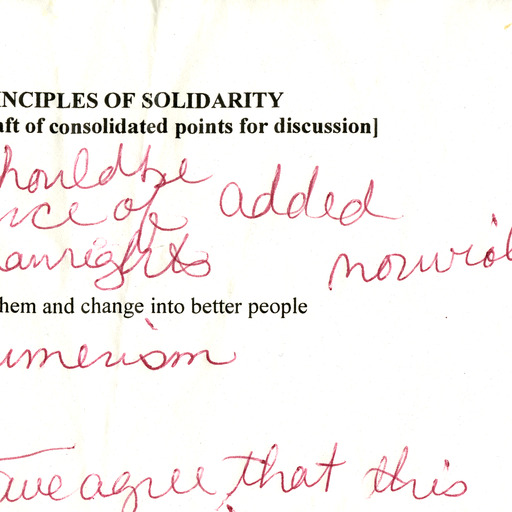 INCIPLES OF SOLIDARITY
aft of consolidated points for discussion]
hould be
nce of added
anrights nonviol
hem and change into better people
umerism
we agree, that this